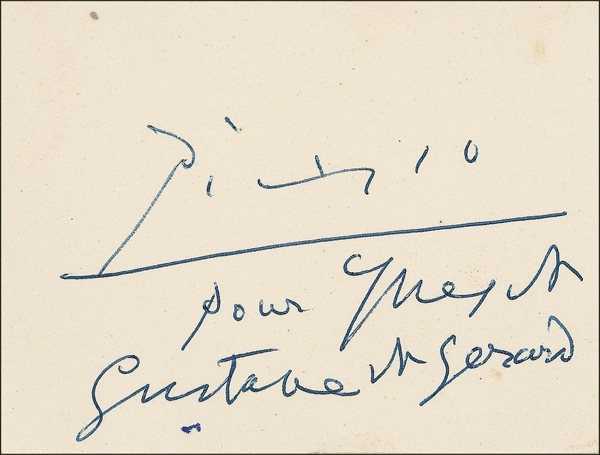 Picasso
pour Ynes et
Gustave et Gerard